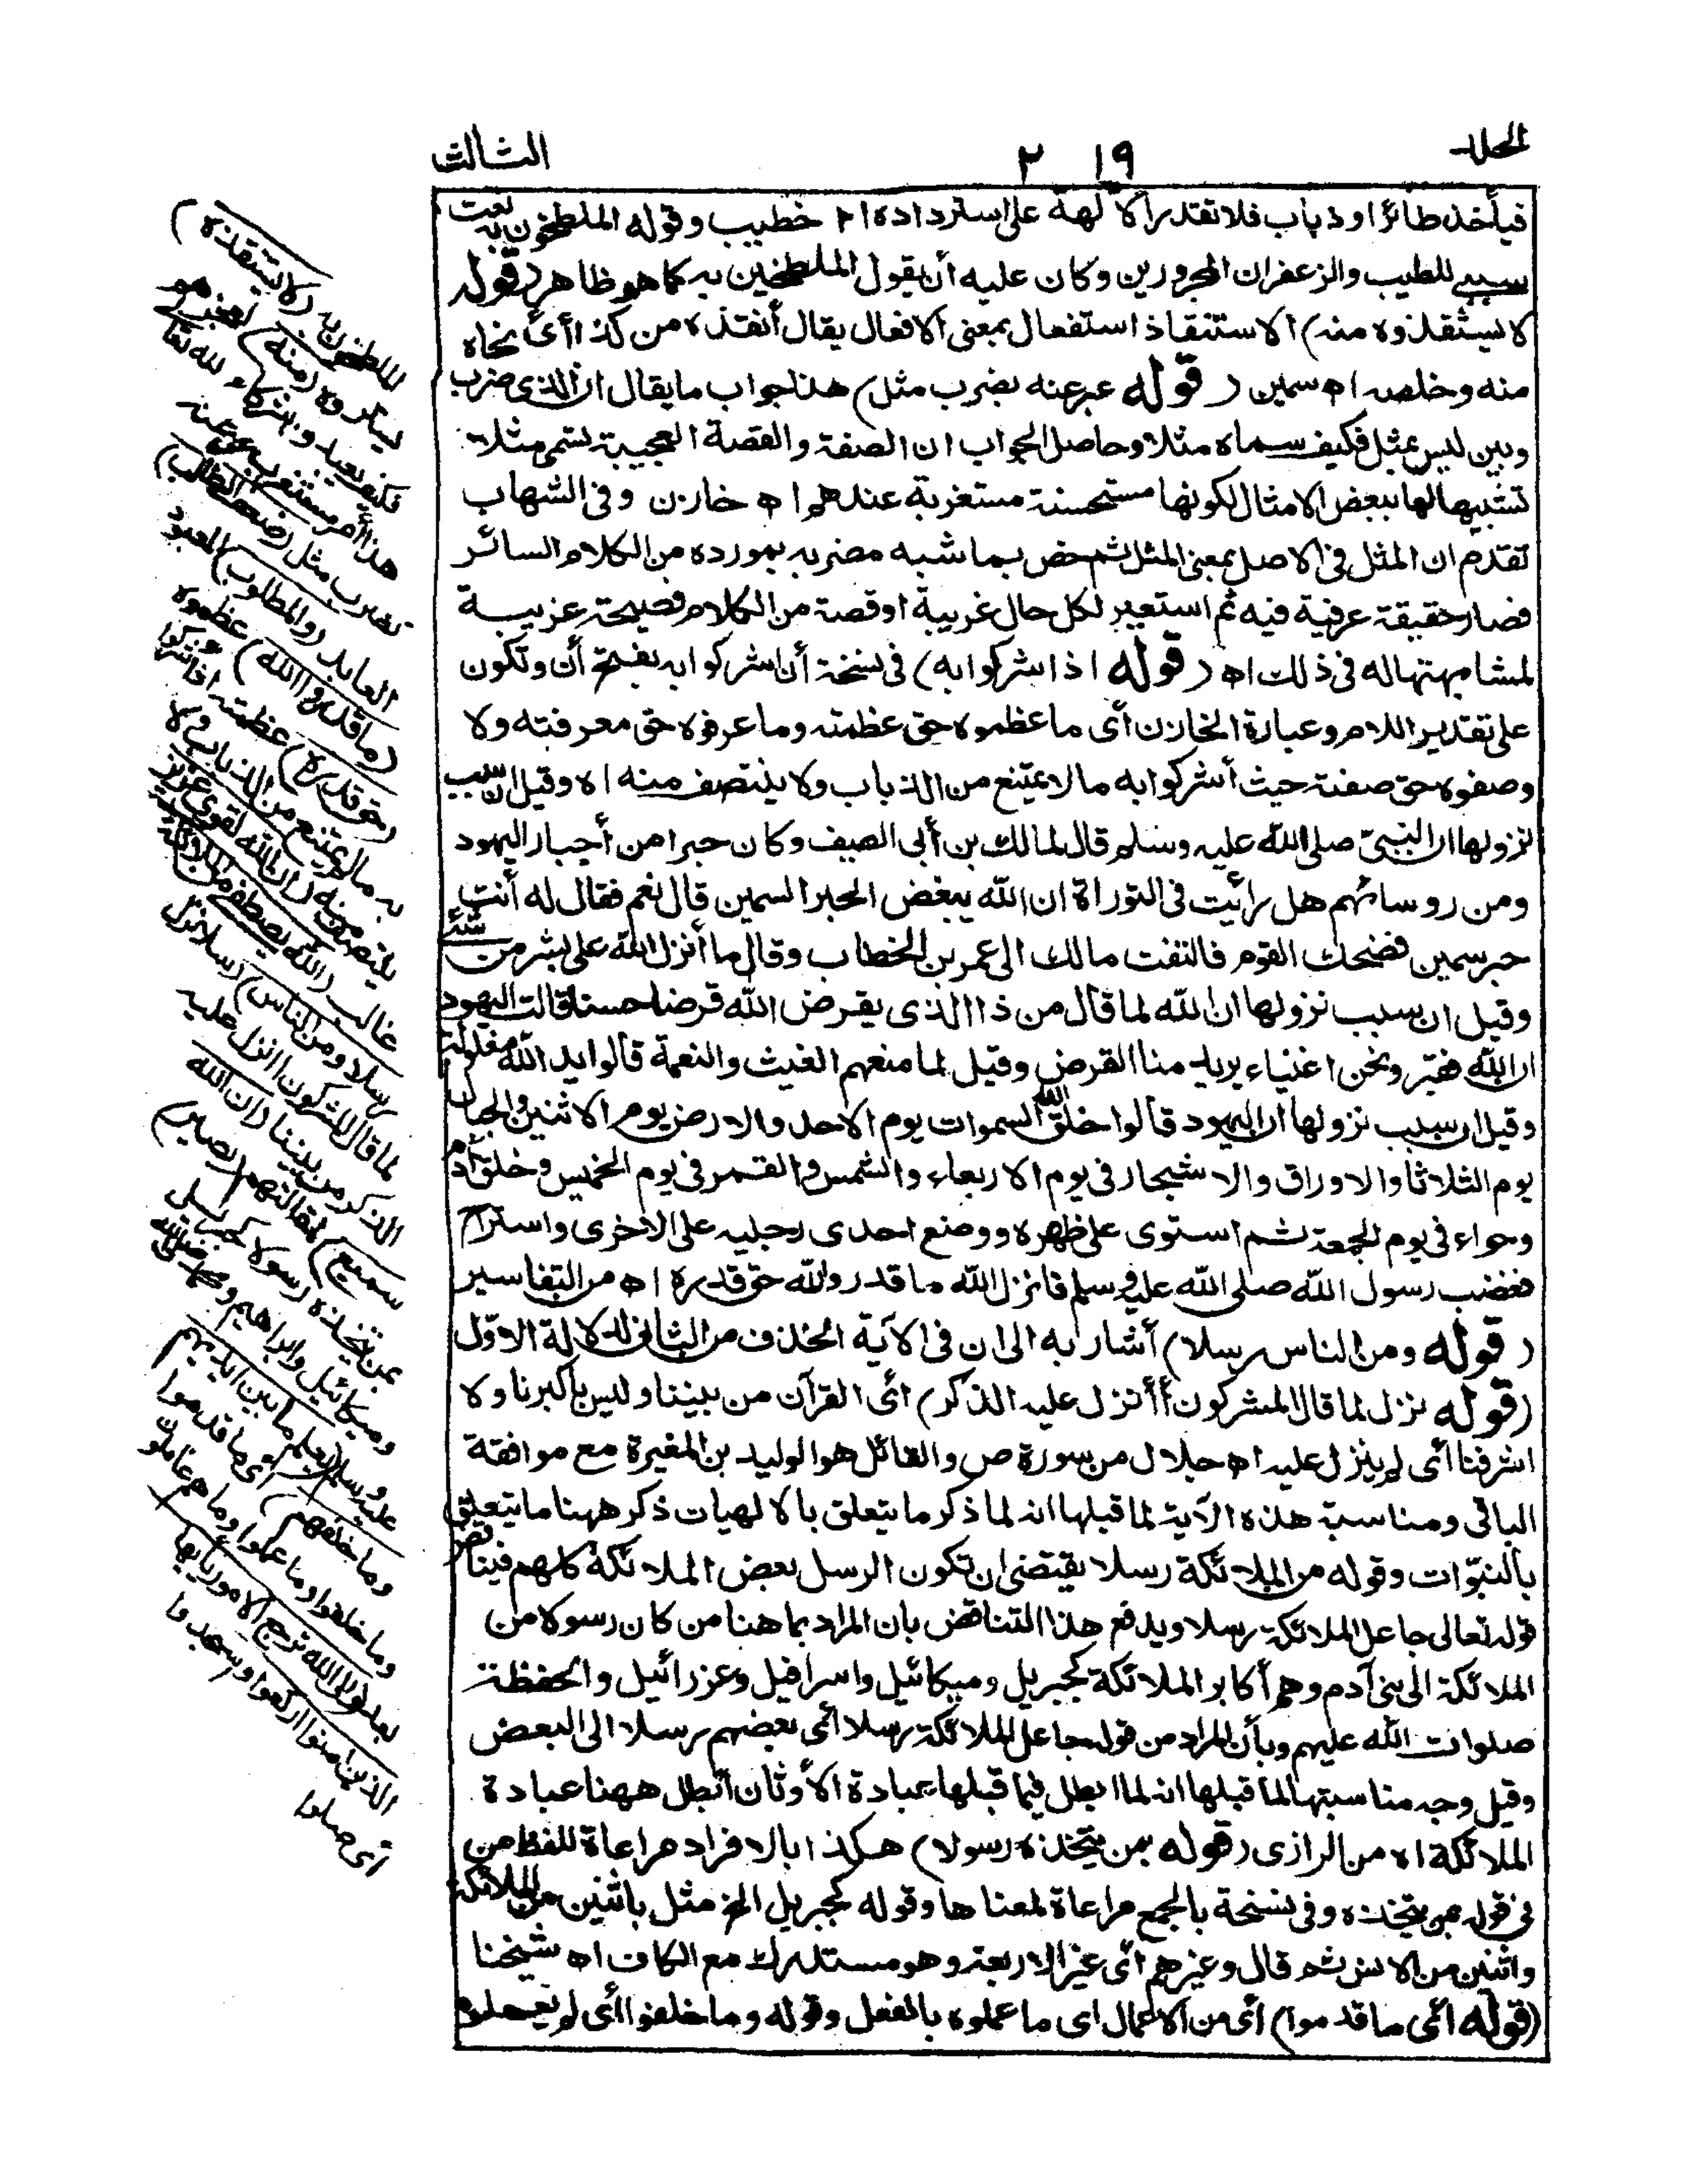 المجلد
٢١٩
الثالث
فيأخذ طائر او ذباب فلا تقدر الآلهة على استرداده اه خطيب وقوله الملطخون به نعت
سببي للطيب والزعفران المجرورين وكان عليه أن يقول الملطخين به كما هو ظاهر (قوله
لا يستنقذوه منه) الاستنقاذ استفعال بمعنى الافعال يقال أنقذه من كذا أى نجاه
منه وخلصه اه سمين (قوله عبر عنه بضرب مثل) هذا جواب ما يقال ان الذى ضرب
وبين ليس بمثل فكيف سماه مثلا وحاصل الجواب ان الصفة والقصة العجيبة تسمى مثلا
تشبيها لها ببعض الامثال لكونها مستحسنة مستغربة عندهم اه خازن وفى الشهاب
تقدم ان المثل فى الاصل بمعنى المثل ثم خص بما شبه مضربه بمورده من الكلام السائر
فصار حقيقة عرفية فيه ثم استعير لكل حال غريبة او قصة من الكلام فصيحة غريبة
لمشابهتها له فى ذلك اه (قوله اذ اشركوا به) فى نسخة أن اشركوا به بفتح أن وتكون
على تقدير اللام وعبارة الخازن أى ما عظموه حق عظمته وما عرفوه حق معرفته ولا
وصفوه حق صفته حيث أشركوا به ما لا يمتنع من الذباب ولا ينتصف منه اه وقيل ان سبب
نزولها ان النبى صلى الله عليه وسلم قال لمالك بن أبى الصيف وكان حبرا من أحبار اليهود
ومن روسائهم هل رأيت فى التوراة ان الله يبغض الحبر السمين قال نعم فقال له أنت
حبر سمين فضحك القوم فالتفت مالك الى عمر بن الخطاب وقال ما أنزل الله على بشر من شئ
وقيل ان سبب نزولها ان الله لما قال من ذا الذى يقرض الله قرضا حسنا قالت اليهود
ان الله فقير ونحن اغنياء يريد منا القرض وقيل لما منعهم الغيث والنعمة قالوا يد الله مغلولة
وقيل ان سبب نزولها ان اليهود قالوا خلق الله السموات يوم الاحد والارض يوم الاثنين والجبال
يوم الثلاثا والاوراق والاشجار فى يوم الاربعاء والشمس والقمر فى يوم الخميس وخلق آدم
وحواء فى يوم الجمعة ثم استوى على ظهره ووضع احدى رجليه على الاخرى واستراح
فغضب رسول الله صلى الله عليه وسلم فانزل الله ما قدروا الله حق قدره اه من التفاسير
(قوله ومن الناس رسلا) أشار به الى ان فى الآية الحذف من الثانى لدلالة الاول
(قوله نزل لما قال المشركون أأنزل عليه الذكر) أى القرآن من بيننا وليس بأكبرنا ولا
اشرفنا أى لم ينزل عليه اه جلال من سورة ص والقائل هو الوليد بن المغيرة مع موافقة
الباقى ومناسبة هذه الآية لما قبلها انه لما ذكر ما يتعلق بالالهيات ذكر ههنا ما يتعلق
بالنبوات وقوله من الملائكة رسلا يقتضى ان تكون الرسل بعض الملائكة لا كلهم فيناقض
قوله تعالى جاعل الملائكة رسلا ويدفع هذا التناقض بان المراد بما هنا من كان رسولا من
الملائكة الى بنى آدم وهم أكابر الملائكة كجبريل وميكائيل واسرافيل وعزرائيل والحفظة
صلوات الله عليهم وبأن المراد من قوله جاعل الملائكة رسلا أى بعضهم رسلا الى البعض
وقيل وجه مناسبتها لما قبلها انه لما ابطل فيما قبلها عبادة الأوثان أبطل ههنا عبادة
الملائكة اه من الرازى (قوله بمن يتخذه رسولا) هكذا بالافراد مراعاة للفظ من
فى قوله بمن يتخذه وفى نسخة بالجمع مراعاة لمعناها وقوله كجبريل الخ مثل باثنين من الملائكة
واثنين من الانس ثم قال وغيرهم أى غير الاربعة وهو مستدرك مع الكاف اه شيخنا
(قوله أى ما قدموا) أى من الاعمال اى ما عملوه بالفعل وقوله وما خلفوا أى لم يعملوه
للطخون به (لا يستنقذوه)
يستردوه (منه) لعجزهم
فكيف يعبدون شركاء لله تعالى
هذا أمر مستغرب عبر عنه
بضرب مثل (ضعف الطالب)
العابد (والمطلوب) المعبود
(ما قدروا الله) عظموه
(حق قدره) عظمته اذ اشركوا
به ما لم يمتنع من الذباب ولا
ينتصف منه (ان الله لقوى عزيز)
غالب (الله يصطفى من الملائكة
رسلا ومن الناس) رسلا نزل
لما قال المشركون أأنزل عليه
الذكر من بيننا (ان الله
سميع) لمقالتهم (بصير)
بمن يتخذه رسولا كجبريل
وميكائيل وابراهيم ومحمد صلى الله
عليه وسلم (يعلم ما بين ايديهم
وما خلفهم) أى ما قدموا
وما خلفوا وما عملوا وما هم عاملون
بعد (والى الله ترجع الامور يا أيها
الذين آمنوا اركعوا واسجدوا)
أى صلوا